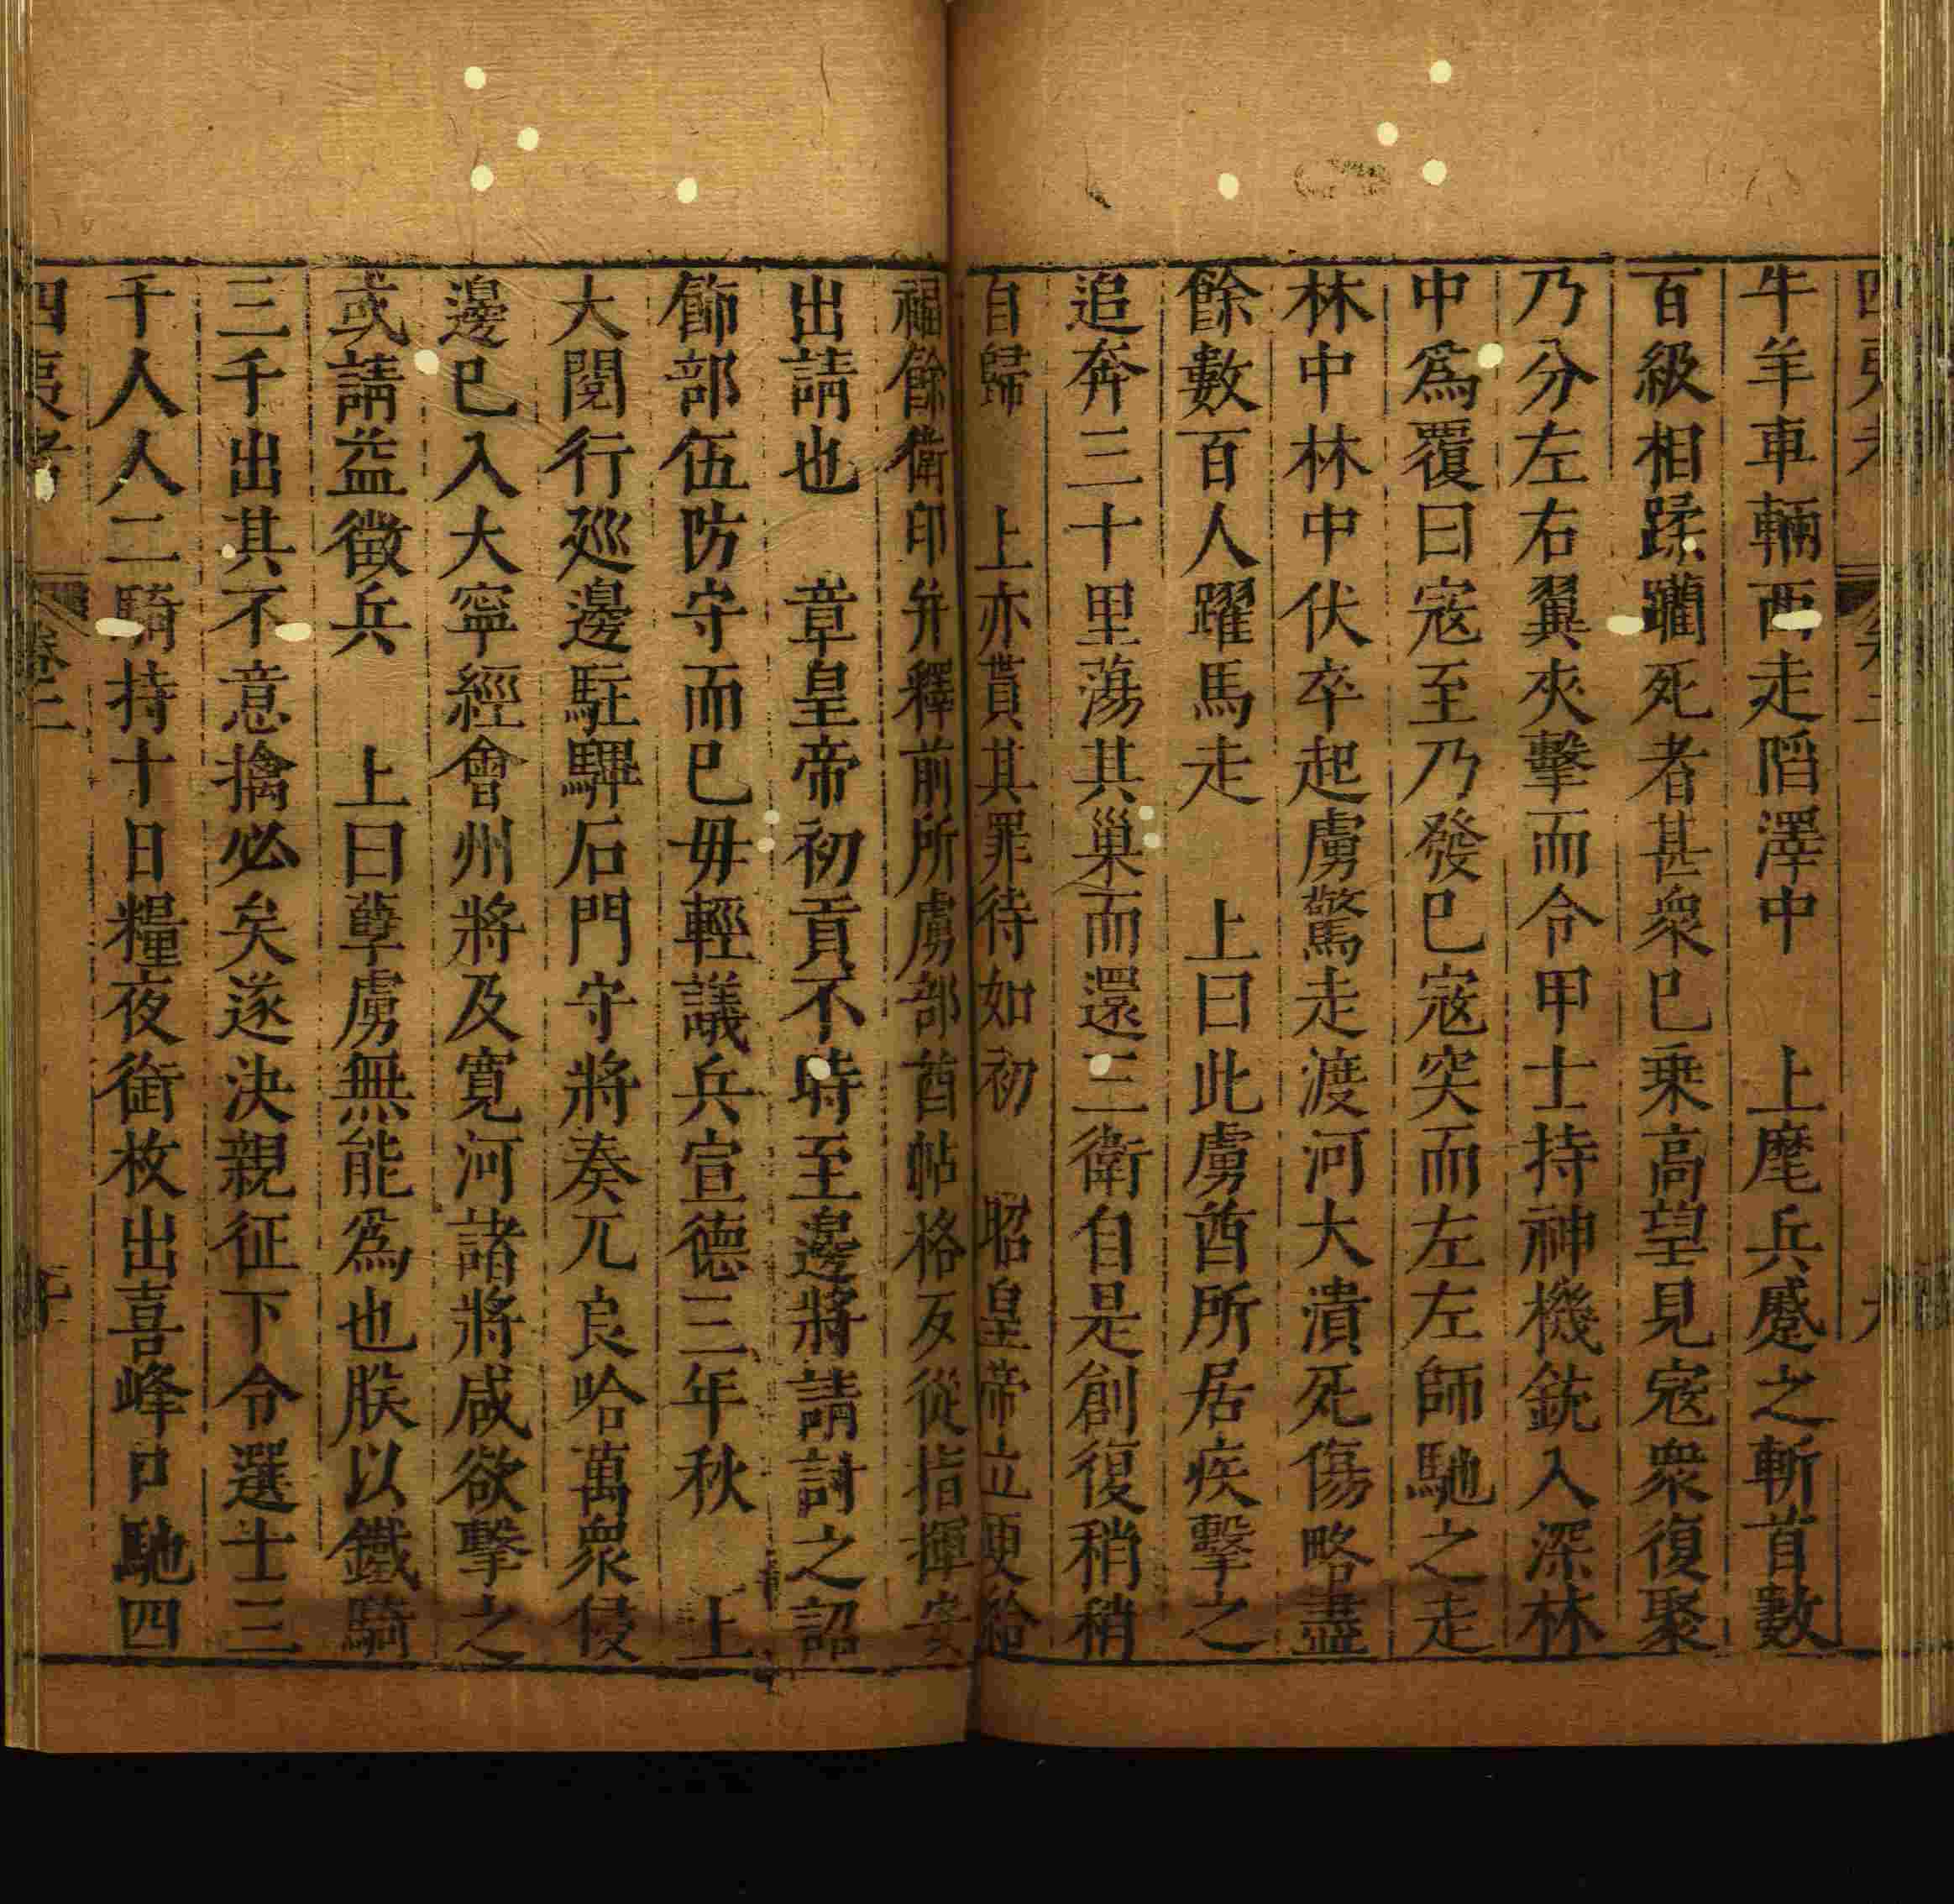 牛羊車輛西走陷澤中　上麾兵蹙之斬首數
百級相蹂躪死者甚衆巳乗高望見寇衆復聚
乃分左右翼夾擊而令甲士持神機銃入深林
中爲覆曰寇至乃發巳寇突而左左師馳之走
林中林中伏卒起虜驚走渡河大潰死傷略盡
餘數百人躍馬走　上曰此虜酋所居疾擊之
追奔三十里蕩其巢而還三衛自是創復稍稍
自歸　上亦貰其罪待如初　昭皇帝立更給
福餘衛印并釋前所虜部酋帖格歹從指揮安
出請也　章皇帝初貢不時至邊將請討之詔
飭部伍防守而巳毋輕議兵宣德三年秋　上
大閱行廵邊駐驆石門守將奏兀良哈萬衆侵
邊巳入大寧經會州將及寛河諸將咸欲擊之
或請益徵兵　上曰孽虜無能爲也朕以鐵騎
三千出其不意擒必矣遂決親征下令選士三
千人人二騎持十日糧夜銜枚出喜峰口馳四
四夷考　卷二